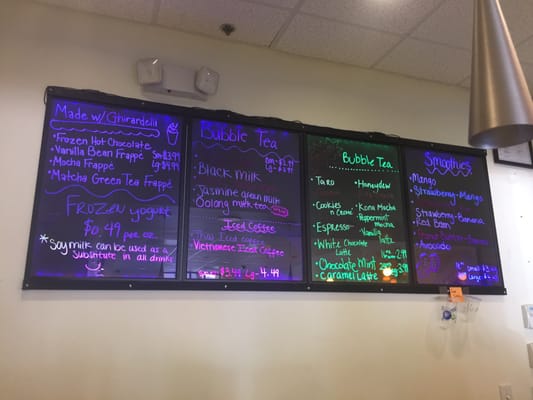 Made w/Ghirardelli
• Frozen Hot Chocolate
• Vanilla Bean Frappé
• Mocha Frappé
• Matcha Green Tea Frappé
Frozen yogurt
$0.49 per oz.
* Soy milk can be used as a
substitute in all drinks
Bubble Tea
• Black Milk
• Jasmine green milk
Oolong milk tea
Iced Coffee
Thai Iced coffee
Vietnamese Iced Coffee
Sm $3.49 Lg- 4.49
Bubble Tea
• Taro
• Honeydew
• Cookies
n Creme
• Kona Mocha
• Peppermint
Mocha
• Espresso
• Vanilla
Latte
• White Chocolate
Latte
• Chocolate Mint
• Caramel Latte
Smoothies
• Mango
• Strawberry-Mango
• Strawberry-Banana
• Red Bean
• Avocado